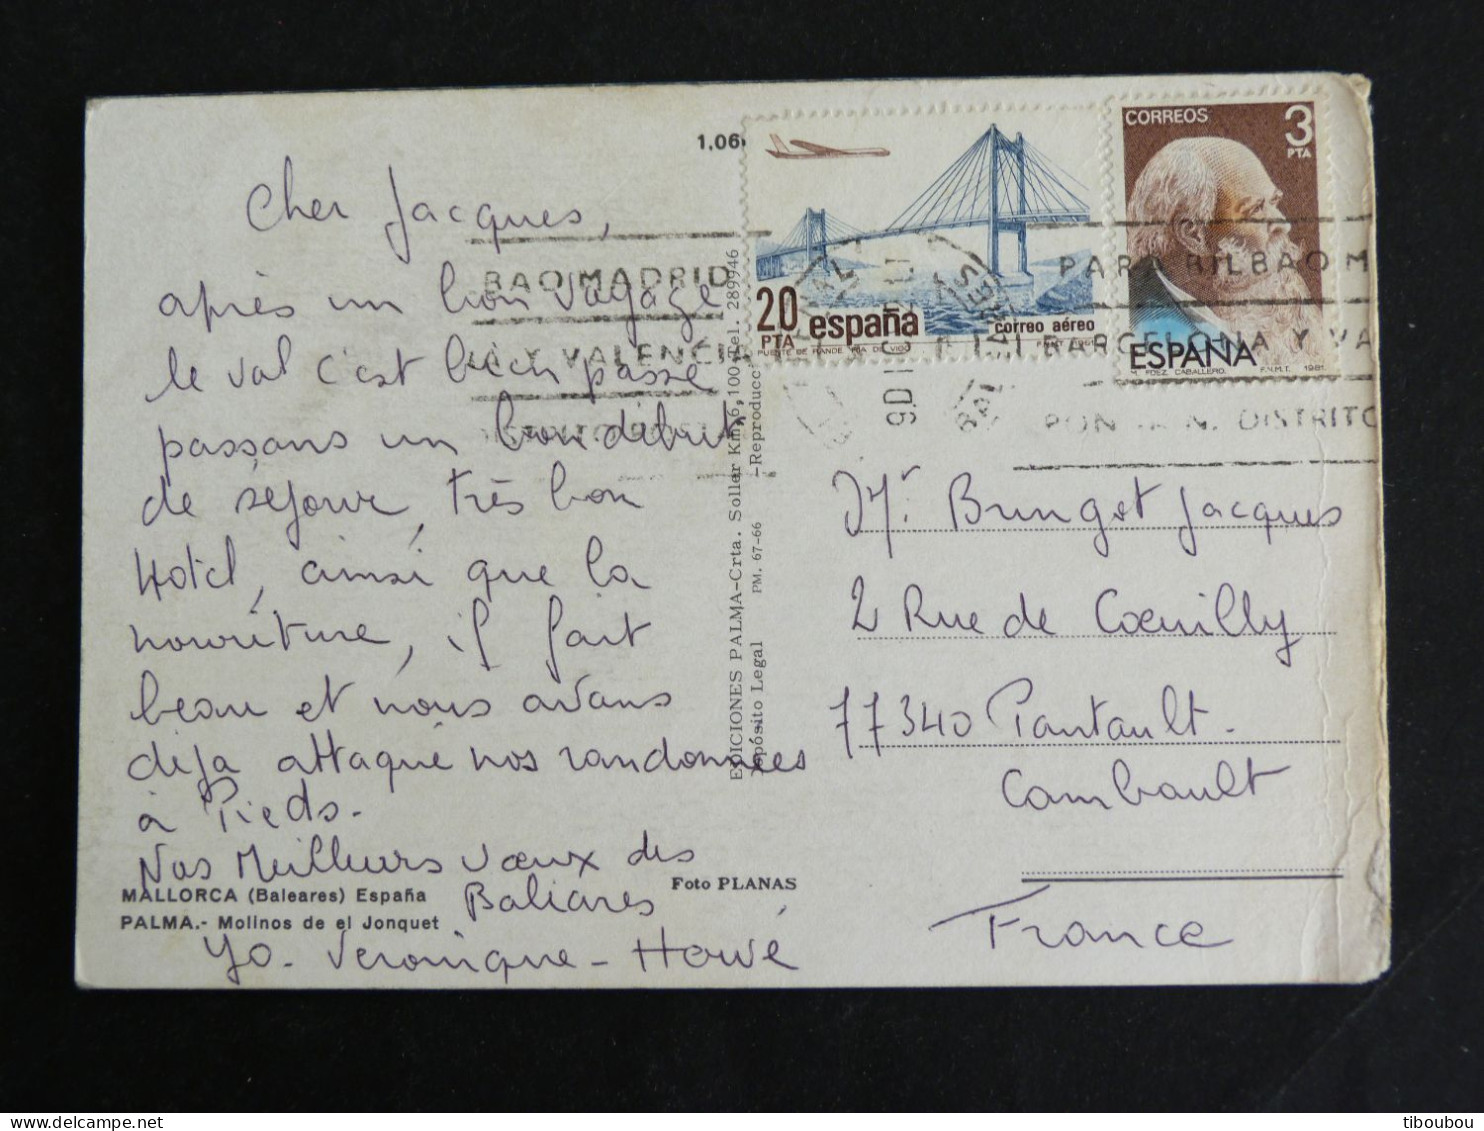 1.06
Cher Jacques,
après un bon voyage
le vol c'est bien passé
passons un bon début
de séjour, très bon
Hotel, ainsi que la
nourriture, il fait
beau et nous avons
déja attaqué nos randonnées
à Pieds.
Nos Meilleurs vœux des
Baliares
Yo. Veronique - Hervé
MALLORCA (Baleares) España
PALMA.- Molinos de el Jonquet
Foto PLANAS
EDICIONES PALMA-Crta. Soller Km. 6,100-Tel. 289946
Depósito Legal PM. 67-66 -Reproducc
BAO MADRID
Y VALENC
20
PTA
españa
correo aéreo
PUENTE DE RANDE RIA DE VIGO
CORREOS
3
PTA
ESPAÑA
M. FDEZ. CABALLERO. F.N.M.T. 1981
PARA BILBAO M
BARCELONA Y VA
DISTRITO
Mr. Jacques
2 Rue de Cœuilly
77340 Pontault.
Combault
France
tiboubou